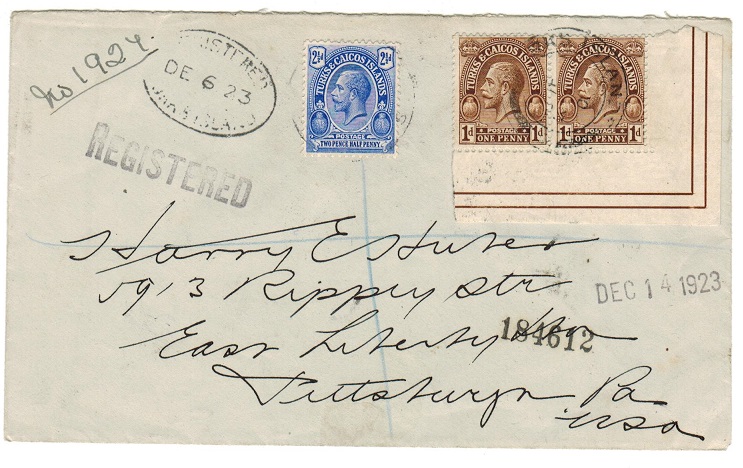 No 1924.
REGISTERED
DE 6 23
REGISTERED
2½d 2½d
TURKS & CAICOS ISLANDS
POSTAGE
TWO PENCE HALF PENNY
TURKS & CAICOS ISLANDS
1d POSTAGE 1d
ONE PENNY
TURKS & CAICOS ISLANDS
1d POSTAGE 1d
ONE PENNY
Harry E Huber
5913 Rippey Str
East Liberty
184612
DEC 14 1923
Pittsburgh Pa
USA